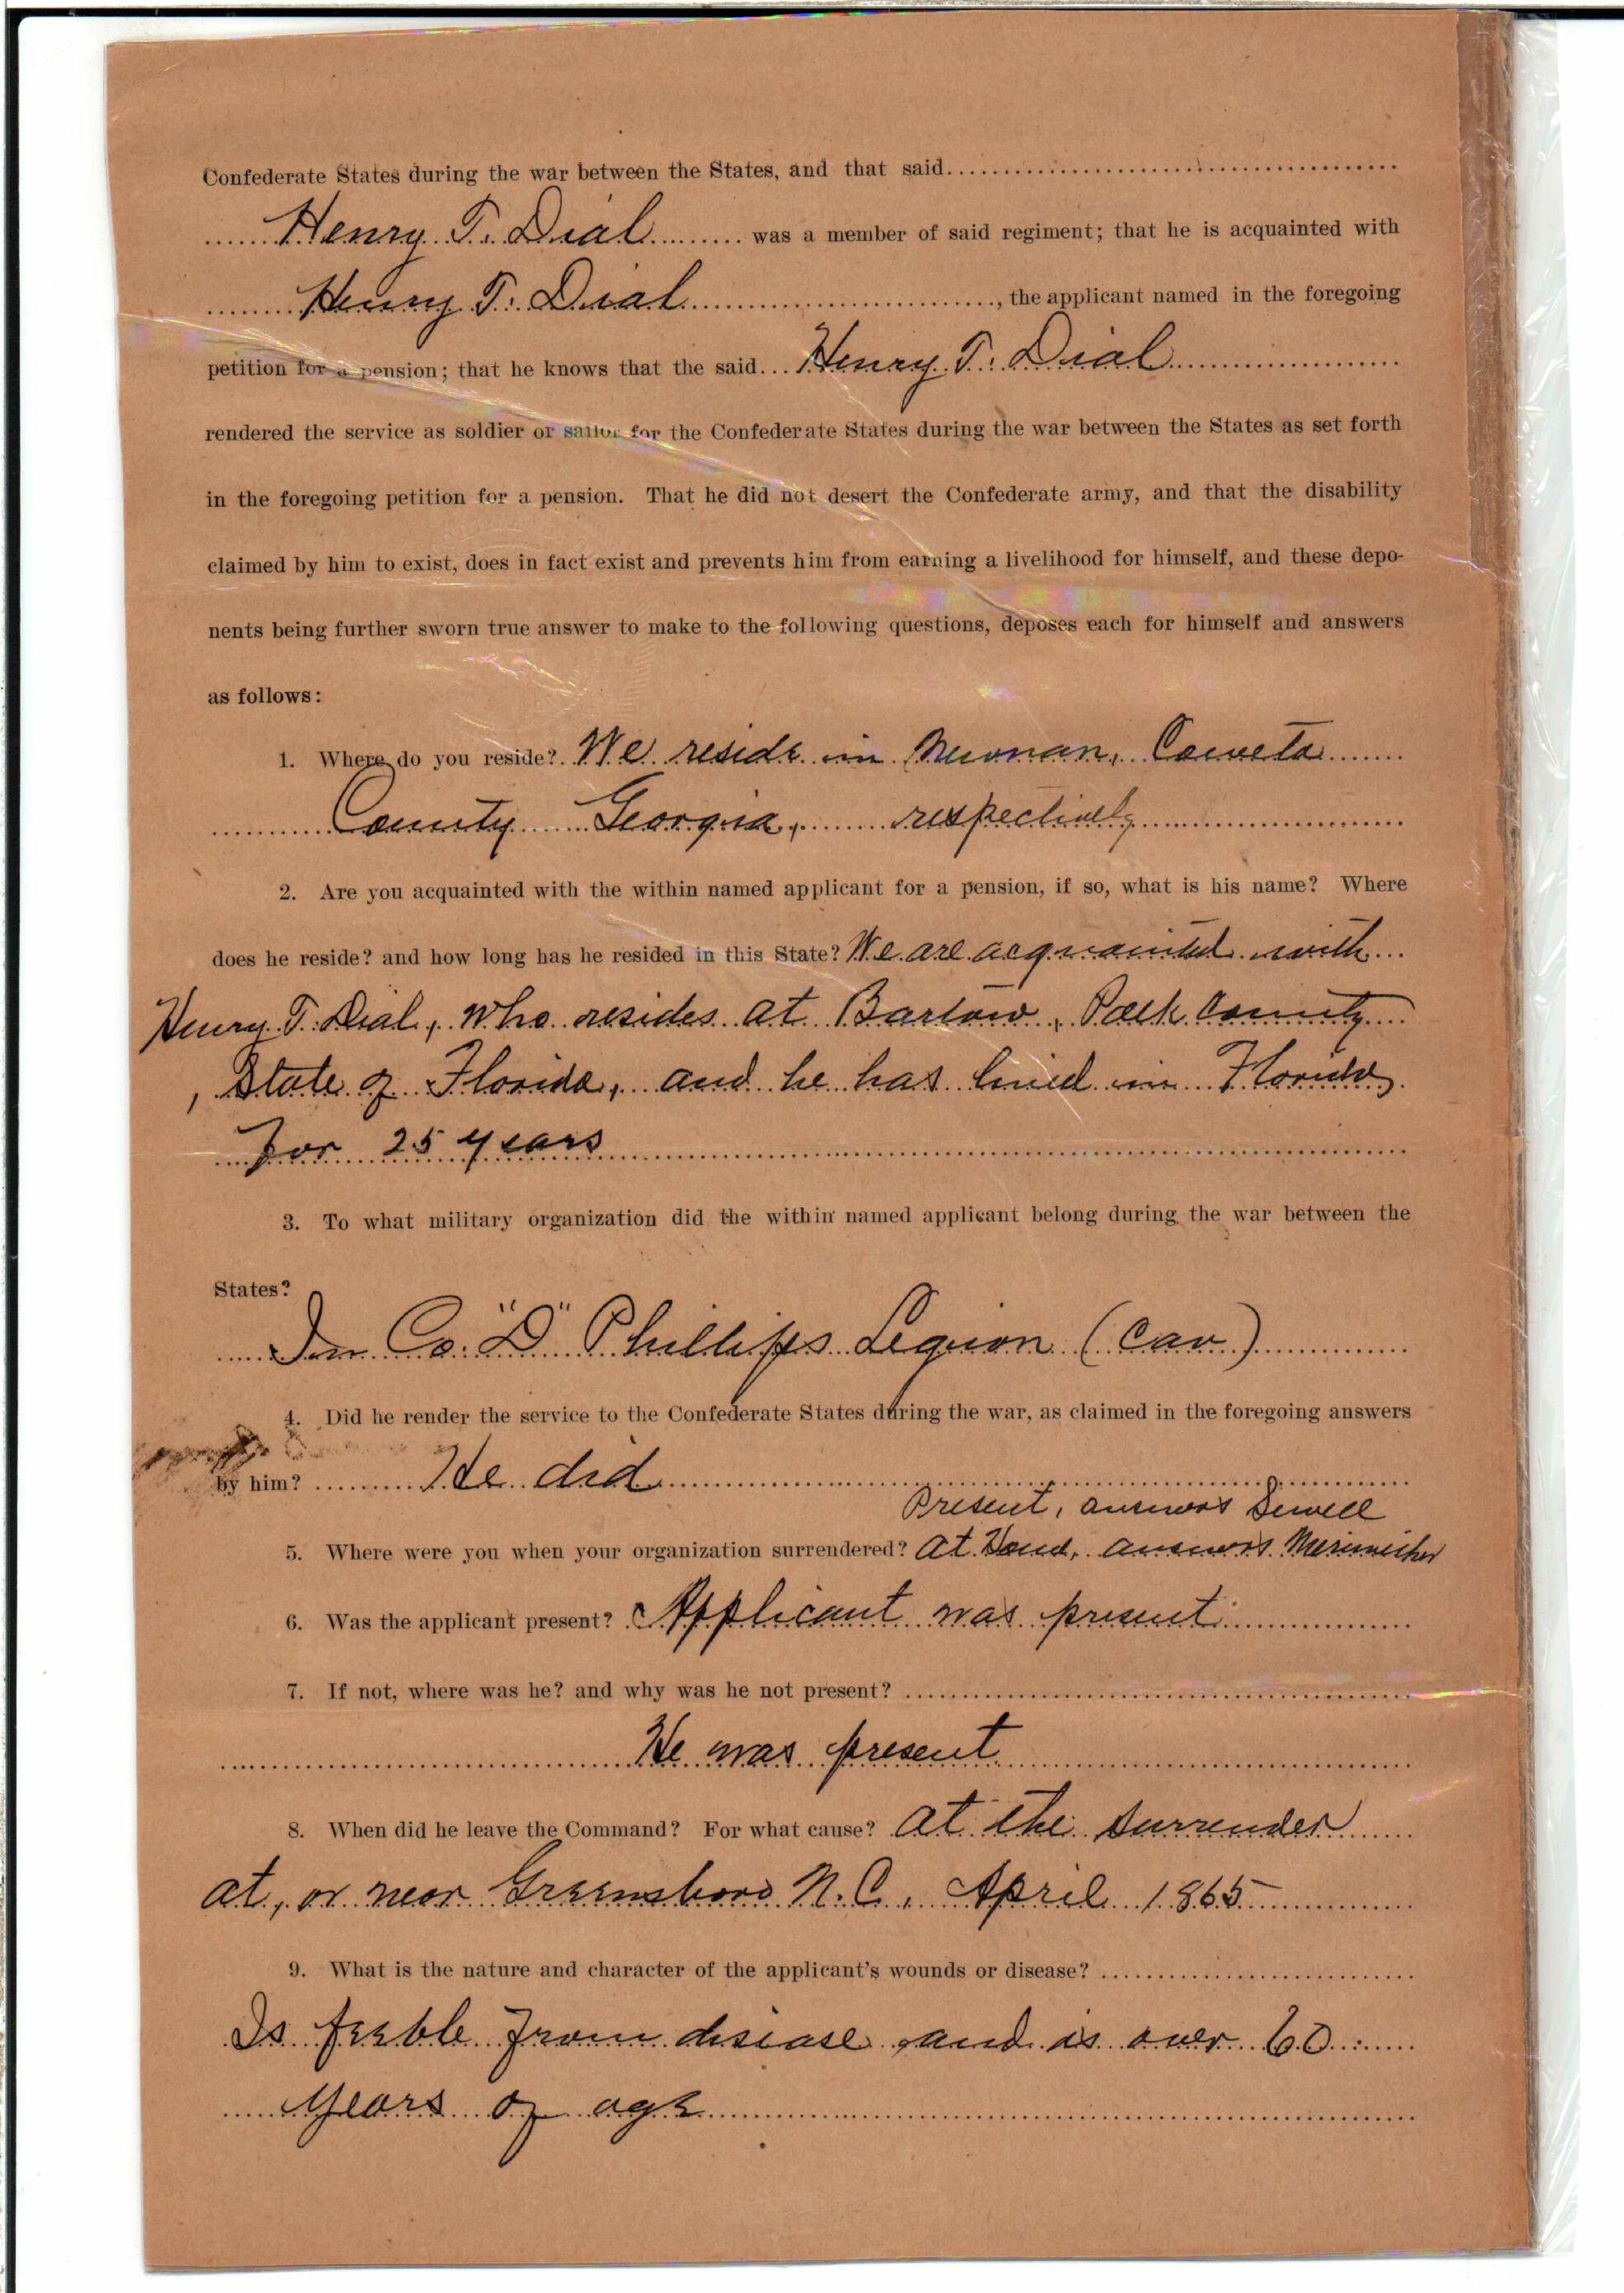 Confederate States during the war between the States, and that said
Henry T. Dial was a member of said regiment; that he is acquainted with
Henry T. Dial, the applicant named in the foregoing
petition for a pension; that he knows that the said Henry T. Dial
rendered the service as soldier or sailor for the Confederate States during the war between the States as set forth
in the foregoing petition for a pension. That he did not desert the Confederate army, and that the disability
claimed by him to exist, does in fact exist and prevents him from earning a livelihood for himself, and these depo-
nents being further sworn true answer to make to the following questions, deposes each for himself and answers
as follows:
1. Where do you reside? We reside in Newnan, Coweta
County Georgia, respectively
2. Are you acquainted with the within named applicant for a pension, if so, what is his name? Where
does he reside? and how long has he resided in this State? We are acquainted with
Henry T. Dial, who resides at Bartow, Polk County
, State of Florida, and he has lived in Florida
for 25 years
3. To what military organization did the within named applicant belong during the war between the
States?
In Co. "D" Phillips Legion (Cav)
4. Did he render the service to the Confederate States during the war, as claimed in the foregoing answers
by him? He did
Present, answers Sewell
5. Where were you when your organization surrendered? At answers
6. Was the applicant present? Applicant was present
7. If not, where was he? and why was he not present?
He was present
8. When did he leave the Command? For what cause? At the surrender
at, or near Greensboro N.C., April 1865
9. What is the nature and character of the applicant's wounds or disease?
Is feeble from disease and is over 60
years of age